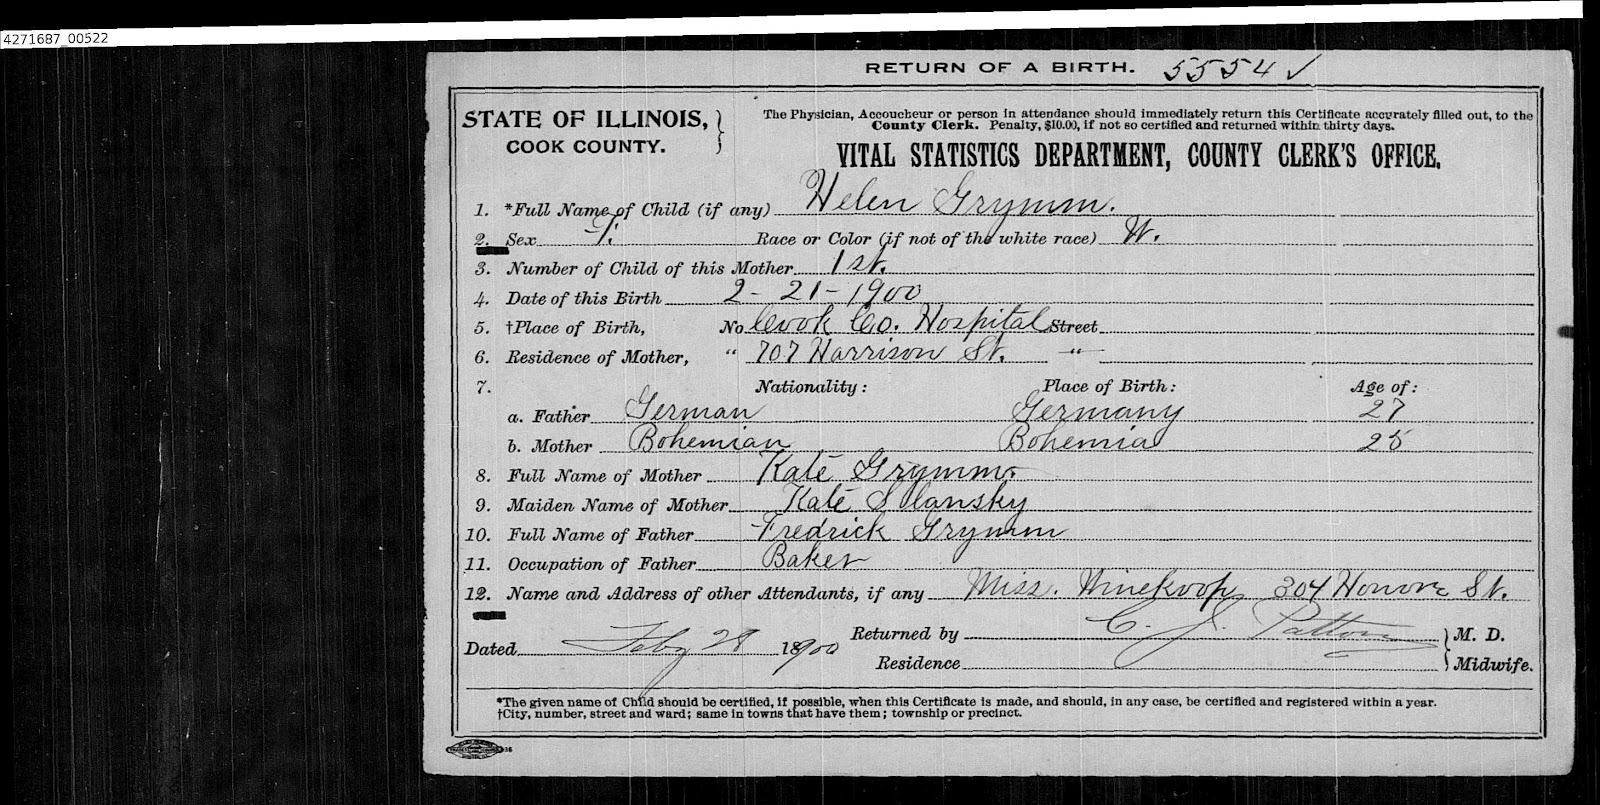 4271687_00522
RETURN OF A BIRTH. 5554 ✓
STATE OF ILLINOIS,
COOK COUNTY.
The Physician, Accoucheur or person in attendance should immediately return this Certificate accurately filled out, to the
County Clerk. Penalty, $10.00, if not so certified and returned within thirty days.
VITAL STATISTICS DEPARTMENT, COUNTY CLERK'S OFFICE.
1. *Full Name of Child (if any) Helen Grymm.
2. Sex F. Race or Color (if not of the white race) W.
3. Number of Child of this Mother 1st.
4. Date of this Birth 2-21-1900
5. †Place of Birth, No Cook Co. Hospital Street
6. Residence of Mother, " 707 Harrison St. "
7. Nationality: Place of Birth: Age of:
a. Father German Germany 27
b. Mother Bohemian Bohemia 25
8. Full Name of Mother Kate Grymm
9. Maiden Name of Mother Kate Slansky
10. Full Name of Father Fredrick Grymm
11. Occupation of Father Baker
12. Name and Address of other Attendants, if any Miss. 304 Honore St.
Dated Feby 28 1900 Returned by C. J. Patton M. D.
Residence Midwife.
*The given name of Child should be certified, if possible, when this Certificate is made, and should, in any case, be certified and registered within a year.
†City, number, street and ward; same in towns that have them; township or precinct.